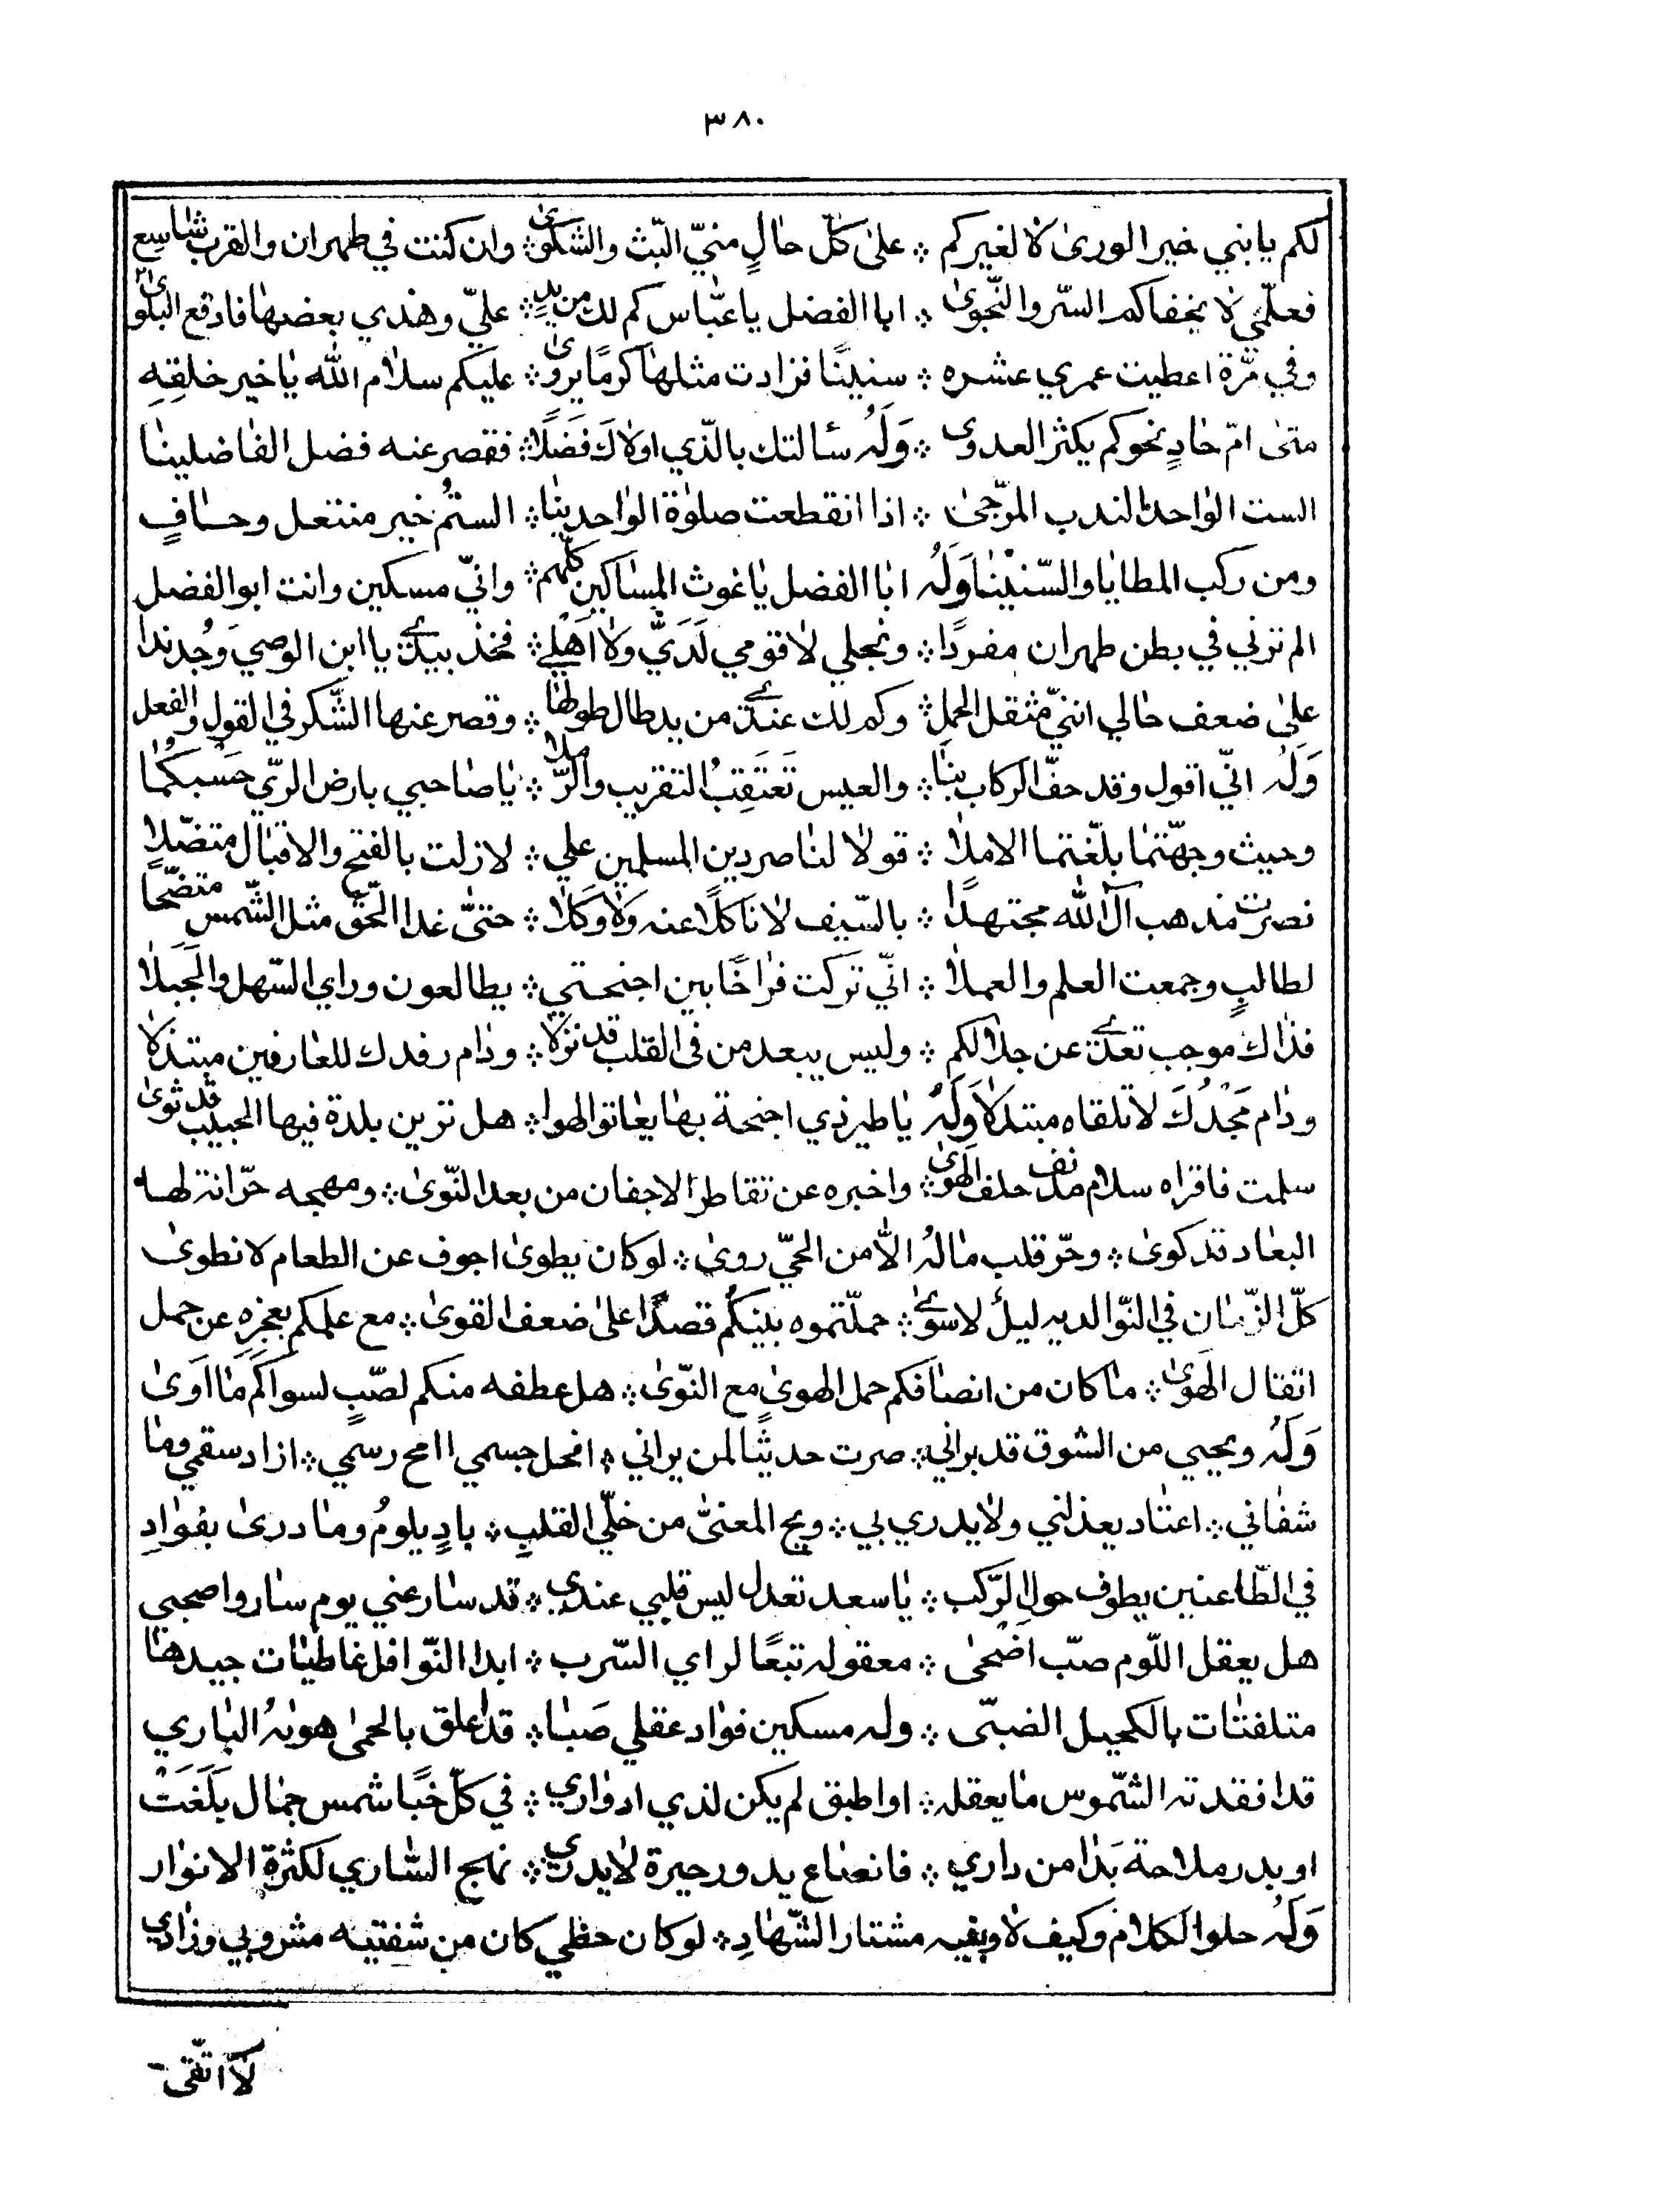 ٣٨٠
لكم يا بني خير الورىٰ لا لغيركم ؞ علىٰ كلّ حالٍ منيّ البّث والشكوىٰ ؞ وان كنت في طهران والقرب شاسع
فعلّمي لا يخفاكم السّر والنّجوىٰ ؞ ابا الفضل يا عبّاس كم لك من يدٍ ؞ عليّ وهذي بعضها فادفع البلوىٰ
وفي مرّة اعطيت عمري عشره ؞ سنينًا فزادت مثلها كرمًا يروىٰ ؞ عليكم سلام الله يا خير خلقِهِ
متىٰ امّ حادٍ نحوكم يكثر العدوى ؞ وَلَهُ سئالتك بالّذي اولاك فَضَلًا ؞ فقصر عنه فضل الفاضلينا
الست الواحد الندب المرّجىٰ ؞ اذا انقطعت صلوٰة الواحدينا ؞ الستُم خير منتعل وحسافٍ
ومن ركب المطايا والسّنيْنا وَلَهُ ابا الفضل يا غوث المساكين كلّهم ؞ وانيّ مسكين وانت ابو الفضل
الم ترني في بطن طهران مفردًا ؞ ونجلي لا قومي لَدَيَّ ولا اَهْلي ؞ فخذ بيدي يا ابن الوصي وَجُد ندا
علىٰ ضعف حالي اننيّ مثقل الحمل ؞ وكم لك عندي من يد طال طولها ؞ وقصر عنها الشّكر في القول والفعل
وَلَهُ انّي اقول وقد حفّ الركاب بنا ؞ والعيس تَعتَقِبُ التقريب والرّملا ؞ يا صاحبي بارض الرّي حَسبكُما
وحيث وجهّتما بلّغتما الاملا ؞ قولا لناصر دين المسلمين علي ؞ لا زلت بالفتح والاقبال متصّلاٍ
نصرت مذهب آل الله مجتهدًا ؞ بالسّيف لا ناكلًا عنه ولا وكلا ؞ حتىّٰ غدا الحّق مثل الشّمس متضّحا
لطالبٍ وجمعت العلم والعملا ؞ انّي تركت فراخًا بين اجنحتي ؞ يطالعون وراي السّهل والجَبَلا
فذاك موجب تعدي عن جلالكم ؞ وليس يبعد من في القلب قد نزلا ؞ ودام رفدك للعارفين مبتذلا
ودام مَجْدُكَ لا تلقاه مبتدلا وَلَهُ يا طير ذي اجنحة بها يعاتو الهوا ؞ هل ترين بلدة فيها الحبيب قد ثوىٰ
سلمت فاقراه سلام مدنف حلف الهوىٰ ؞ واخبره عن تقاطر الاجفان من بعد النّوىٰ ؞ ومهجه حرّانة لها
البعاد قد كوىٰ ؞ وحّر قلب ما لهُ الّا من الحيّ روىٰ ؞ لو كان يطوىٰ اجوف عن الطعام لا نطوىٰ
كلّ الزّمان في النّوا لديه ليلٌ لا سوىٰ ؞ حملّتموه بينكُم قصدًا علىٰ ضعف القوىٰ ؞ مع علمكم بعجزِهِ عن حمل
اتقال الهَوىٰ ؞ ما كان من انصافكم حمل الهوىٰ مع النّوىٰ ؞ هل عطفه منكم لصّبٍ لسواكم ما اَوىٰ
وَلَهُ ويحيي من الشوق قد براني ؞ صرت حديثًا لمن يراني ؞ انحل جسمي امح رسمي ؞ ازاد سقمي وما
شفاني ؞ اعتاد يعذلني ولا يدري بي ؞ ويح المعنىّٰ من خلّي القلبِ ؞ بادٍ يلومُ وما درىٰ بفوادِ
في الظّاعنين يطوف حول الرّكب ؞ يا سعد تعدل ليس قلبي عندي ؞ قد سار عني يوم ساروا صحبي
هل يعقل اللّوم صبّ اضحٰى ؞ معقوله تبعًا لراي السّرب ؞ ابدا النّوافل غاطيات جيدها
متلفتات بالكجيل الضبّى ؞ وله مسكين فواد عقلي صَبَا ؞ قد اعلق بالحمىٰ هوٰيهُ الباري
قد افقدته الشّموس ما يعقله ؞ او اطبق لم يكن لذي ادواري ؞ في كلّ خبًا شمس جمال بَلَغَتْ
او بدر ملاحة بَدا من داري ؞ فانعناع يدور حيرة لا يدري ؞ نهج السّاري لكثرة الانوار
وَلَهُ حلوا الكلام وكيف لا وبفيه مشتار الشّهادِ ؞ لو كان حظي كان من شفتيه مشروبي وزادي
لا اتّقى